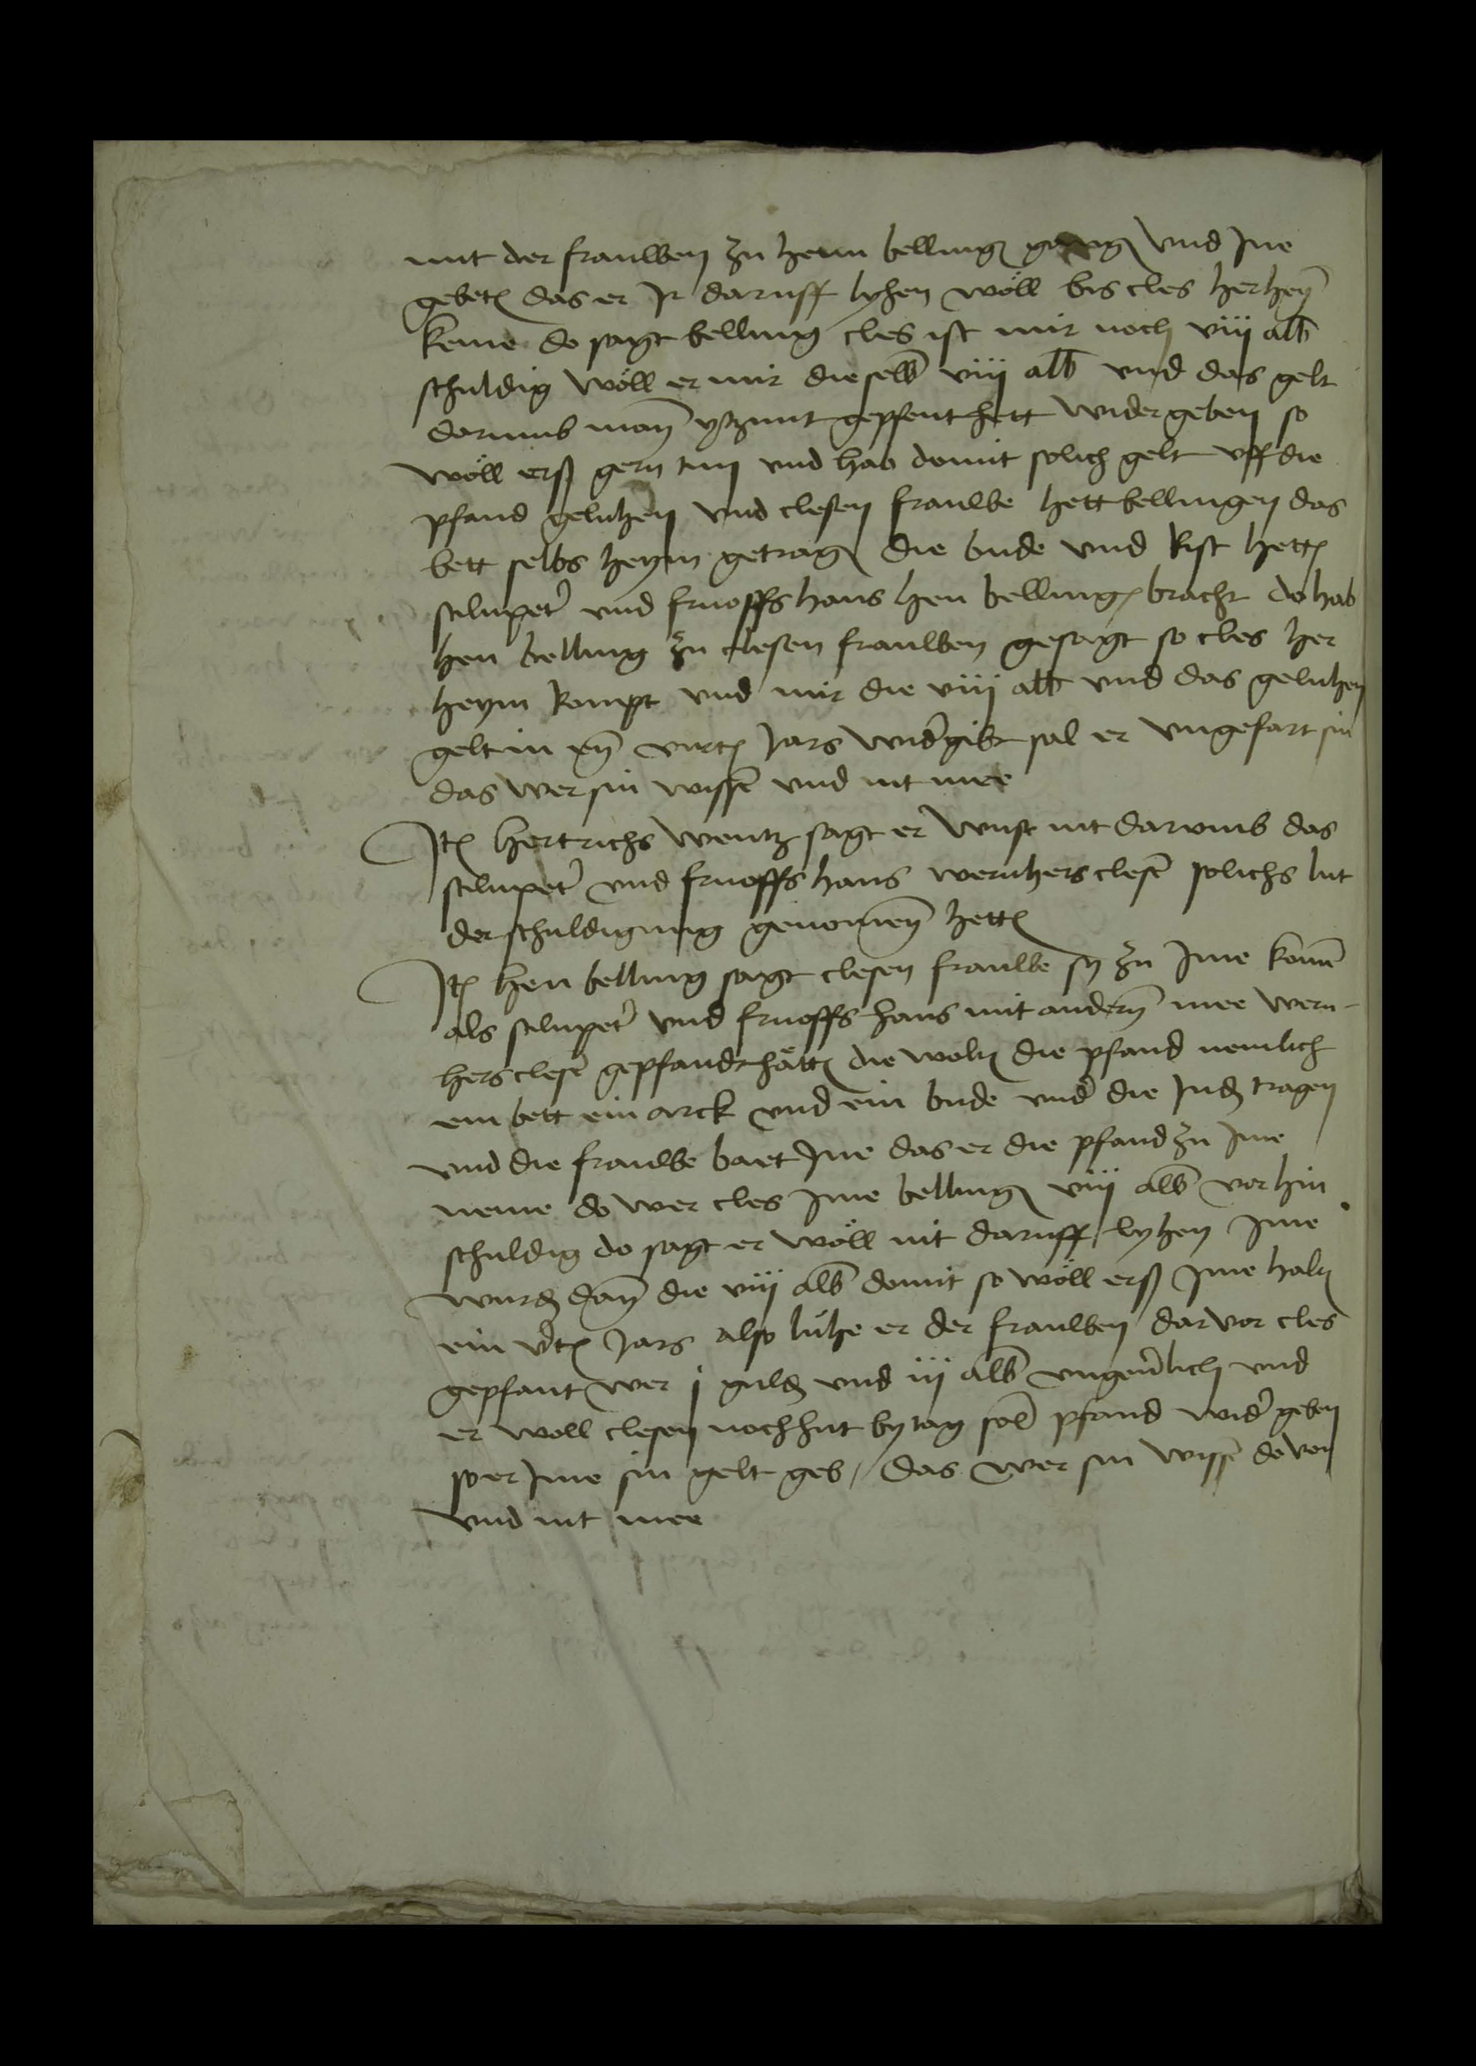 mit der frauwen zu henn bellingen gangen und ine
gebeten das er ir daruff lyhen wöll bis cles herheym
keme do sagt belling cles ist mir noch viii alb
schuldig wöll er mir dieselb viii alb und das gelt
darumb man yczunt gepfent hett wider geben so
wöll erß gern tun und hab domit solich gelt uff die
pfand geluhen und clesen frauwe hett bellingen das
bett selbs heym getragen die bude und kist hetten
peter und hans hen bellingen bracht do hab
hen belling zu clesen frauwen gesagt so cles her
heym kompt und mir die viii alb und das geluhen
gelt in eym virten jars widergibt sal er ungefart sin
das wer sin wissen und nit mee
Item hertrichs wentz sagt er wust nit darumb das
peter und hans wernhers clesen solichs lut
der schuldigung genomen hetten
Item hen belling sagt clesen frauwe sy zu ime komen
als peter und hans mit andern mee wern-
hers clesen gepfandt hätten die wolten die pfand nemlich
ein bett ein arck und ein bude under die juden tragen
und die frauwe baet ine das er die pfand zu ime
neme do wer cles ime bellingen viii alb vorhin
schuldig do sagt er wöll nit daruff lyhen ime
wurden dann die viii alb domit so wöll erß ime halten
ein virten jars also luhe er der frauwen darvor cles
gepfant wer j gulden und iii alb ungeverlich und
er woll clesen noch hut by tag sol pfand wider geben
so er ime sin gelt geb / das wer sin wissen do von
und nit mee